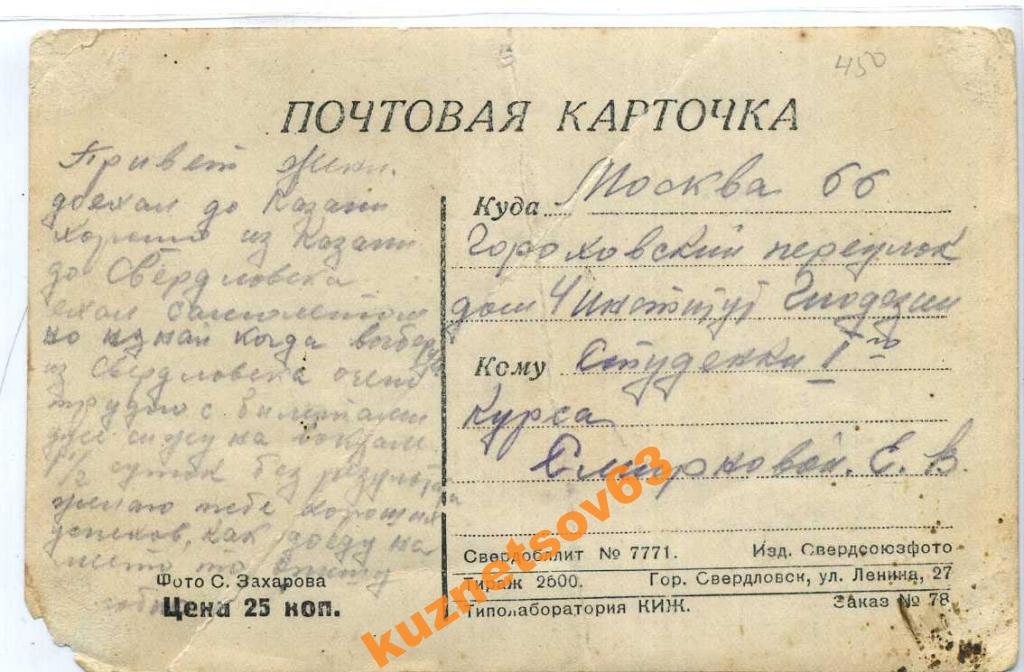 450
ПОЧТОВАЯ КАРТОЧКА
Привет Жени.
доехал до Казани
хорошо из Казани
до Свердловска
ехал самолетом
но когда
из Свердловска очень
трудно с билетами
сижу на вокзале
1/2 суток без
желаю тебе хороших
успехов, как доеду на
место то
Фото С. Захарова
Цена 25 коп.
Куда Москва 66
Гороховский переулок
дом 4 Институт Гиодезии
Кому Студенки I го
курса
Смирновой. Е. В.
Свердобллит № 7771. Изд. Свердсоюзфото
Тираж 2500. Гор. Свердловск, ул. Ленина, 27
Типолаборатория КИЖ. Заказ № 78
kuznetsov63